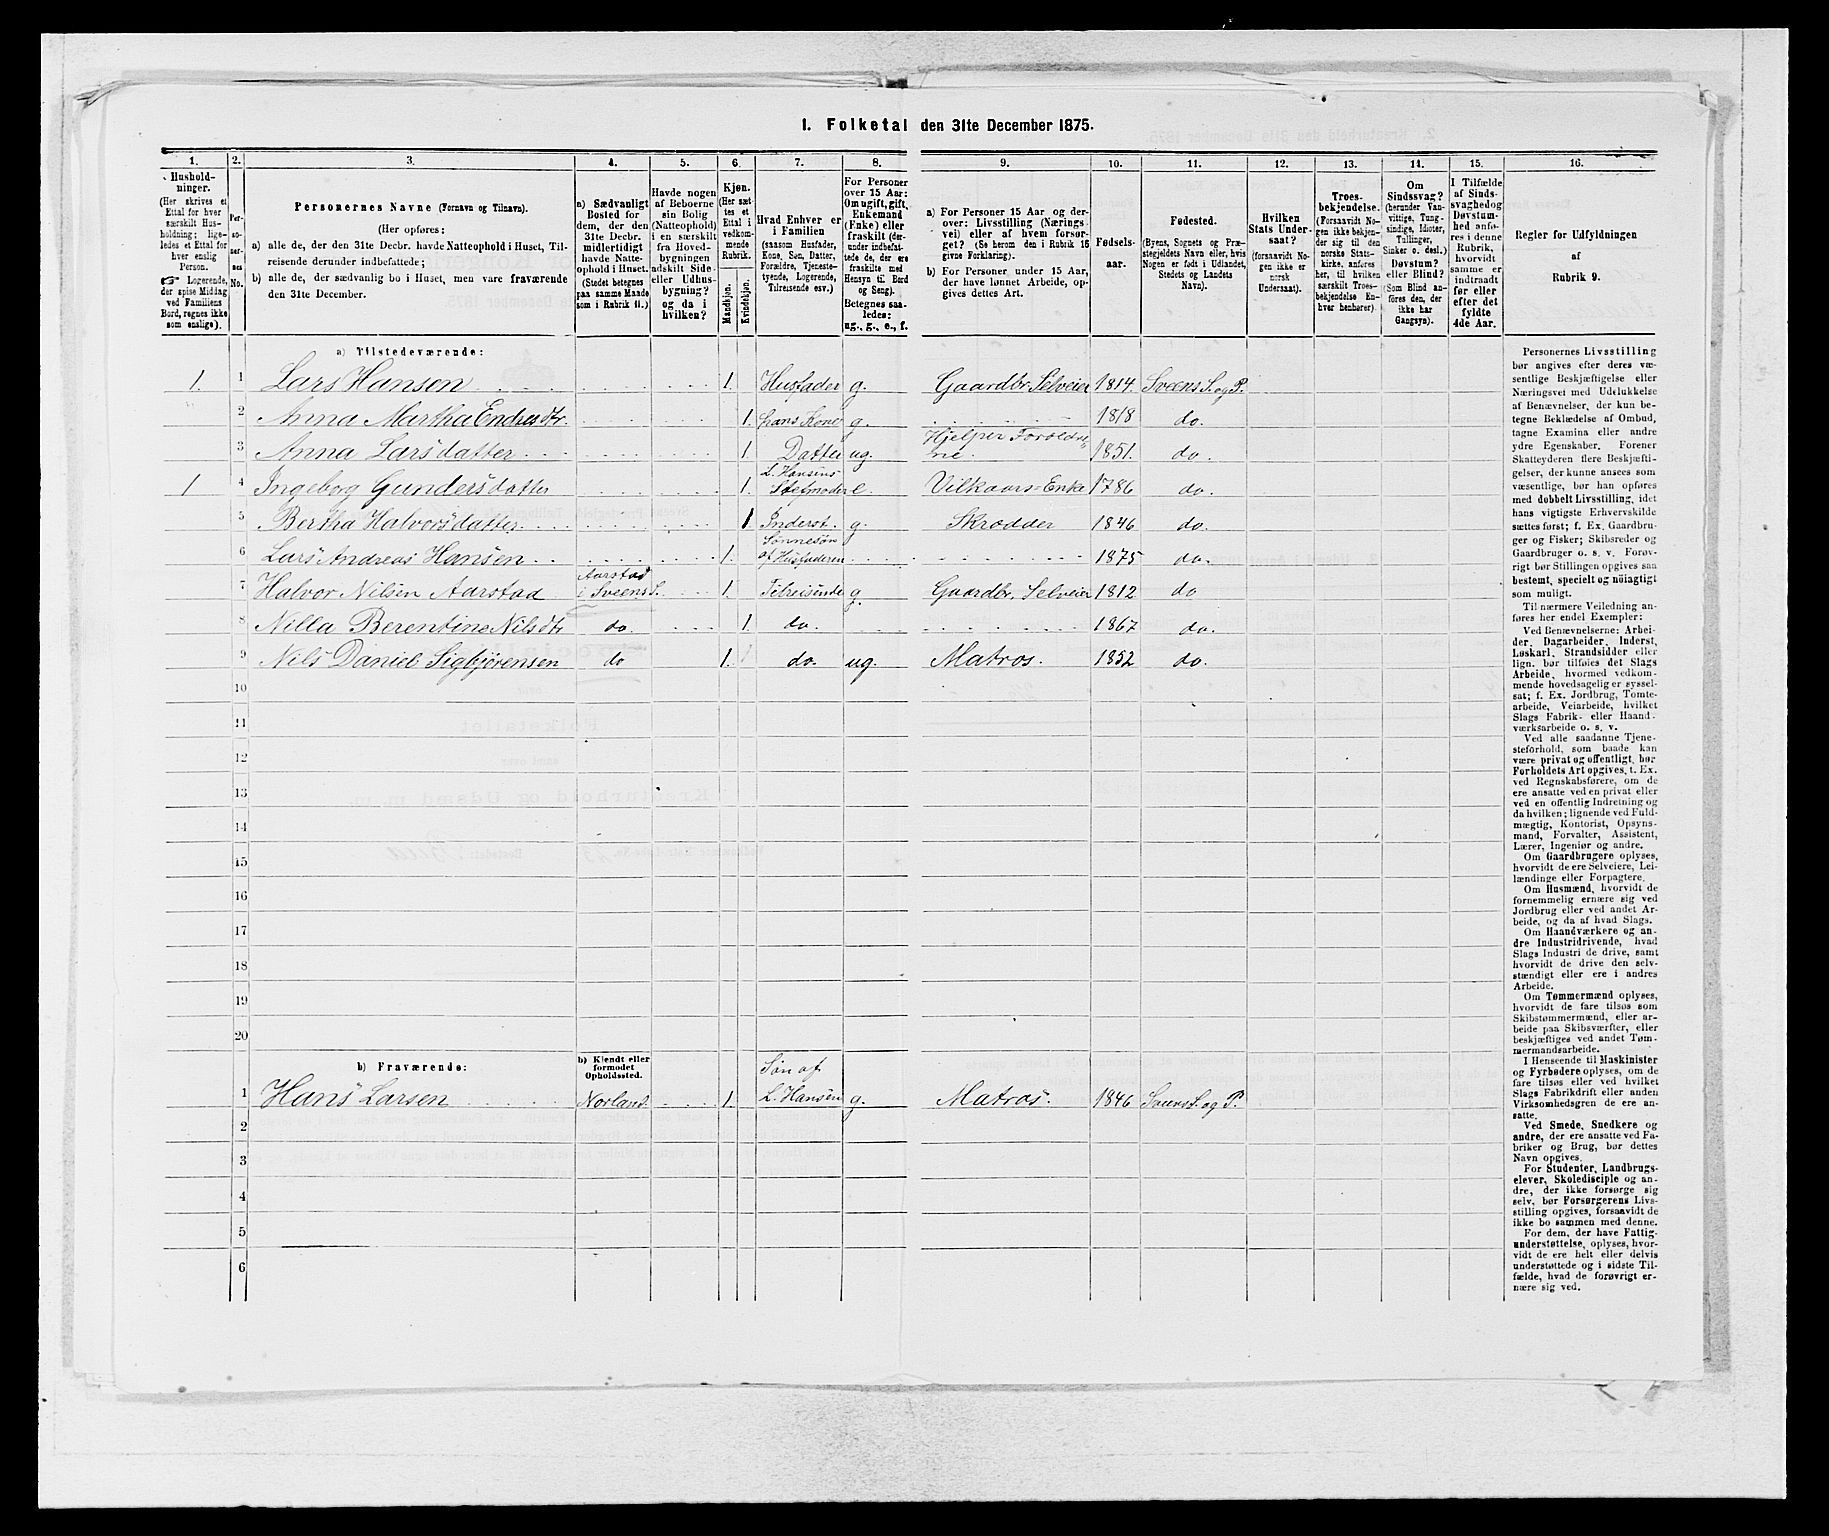 1. Folketal den 31te December 1875.
1. 2. 3. 4. 5. 6. 7. 8. 9. 10. 11. 12. 13. 14. 15. 16.
Hushold-
ninger.
(Her skrives et
Ettal for hver
særskilt Hus-
holdning; lige-
ledes et Ettal for
hver enslig
Person.
☞ Logerende,
der spise Middag
ved Familiens
Bord, regnes ikke
som enslige).
Per-
so-
ner-
nes
No.
Personernes Navne (Fornavn og Tilnavn).
(Her opføres:
a) alle de, der den 31te Decbr. havde Natteophold i Huset, Til-
reisende derunder indbefattede;
b) alle de, der sædvanlig bo i Huset, men vare fraværende
den 31te December.
a) Sædvanligt
Bosted for
dem, der den
31te Decbr.
midlertidigt
havde Natte-
ophold i Huset.
(Stedet betegnes
paa samme Maade
som i Rubrik 11.)
Havde nogen
af Beboerne
sin Bolig
(Natteophold)
i en særskilt
fra Hoved-
bygningen
adskilt Side-
eller Udhus-
bygning?
og da i
hvilken?
Kjøn.
(Her sæt-
tes et
Ettal i
vedkom-
mende
Rubrik.
Mandkjøn.
Kvindekjøn.
Hvad Enhver er
i Familien
(saasom Husfader,
Kone, Søn, Datter,
Forældre, Tjeneste-
tyende, Logerende,
Tilreisende osv.)
For Personer
over 15 Aar:
Om ugift, gift,
Enkemand
(Enke) eller
fraskilt (der-
under indbefat-
tede de, der ere
fraskilte med
Hensyn til Bord
og Seng).
Betegnes saa-
ledes:
ug., g., e., f.
a) For Personer 15 Aar og der-
over: Livsstilling (Nærings-
vei) eller af hvem forsør-
get? (Se herom den i Rubrik 16
givne Forklaring).
b) For Personer under 15 Aar,
der have lønnet Arbeide, op-
gives dettes Art.
Fødsels-
aar.
Fødested.
(Byens, Sognets og Præ-
stegjeldets Navn eller, hvis
Nogen er født i Udlandet,
Stedets og Landets
Navn).
Hvilken
Stats Under-
saat?
(forsaavidt No-
gen ikke er
norsk
Undersaat).
Troes-
bekjendelse.
(Forsaavidt No-
gen ikke bekjen-
der sig til den
norske Stats-
kirke, anføres
her, til hvilken
særskilt Troes-
bekjendelse En-
hver henhører).
Om
Sindssvag?
(herunder Van-
vittige, Tung-
sindige, Idioter,
Tullinger,
Sinker o. desl.)
Døvstum?
eller Blind?
(Som Blind an-
føres den, der
ikke har
Gangsyn).
I Tilfælde
af Sinds-
svaghed og
Døvstum-
hed anfø-
res i denne
Rubrik,
hvorvidt
samme er
indtraadt
før eller
efter det
fyldte
4de Aar.
Regler for Udfyldningen
af
Rubrik 9.
a) Tilstedeværende:
1. 1 Lars Hansen 1. Husfader g. Gaardbr. Selveier 1814. Sveens S. og P.
2 Anna Martha Endresdtr. 1. hans Kone g. 1818 do.
3 Anna Larsdatter 1. Datter ug. Hjelper Foroldre"ne. 1851. do.
1 4 Ingeborg Gundersdatter 1. L. Hansens Stefmoder e. Vilkaars=Enke 1786 do.
5 Bertha Halvorsdatter. 1 Inderst. g. Skrædder 1846 do.
6 Lars Andreas Hansen 1. Sønnesøn af Husfaderen 1875 do.
7 Halvor Nilsen Aarstad Aarstad i Sveens S. 1. Tilreisende g. Gaardbr. Selveier 1812 do
8 Nilla Berentine Nilsdtr do. 1. do. 1867 do.
9 Nils Daniel Sigbjørensen do 1. do. ug. Matros. 1852 do.
10
11
12
13
14
15
16
17
18
19
20
b) Fraværende:
b) Kjendt eller
formodet
Opholdssted.
1 Hans Larsen Norland. 1. Søn af L. Hansen g. Matros. 1846 Sveens S. og P.
2
3
4
5
6
Personernes Livsstilling
bør angives efter deres væ-
sentlige Beskjæftigelse eller
Næringsvei med Udelukkelse
af Benævnelser, der kun be-
tegne Beklædelse af Ombud,
tagne Examina eller andre
ydre Egenskaber. Forener
Skatteyderen flere Beskjæfti-
gelser, der kunne ansees som
væsentlige, bør han opføres
med dobbelt Livsstilling, idet
hans vigtigste Erhvervskilde
sættes først; f. Ex. Gaardbru-
ger og Fisker; Skibsreder og
Gaardbruger o. s. v. Forøv-
rigt bør Stillingen opgives saa
bestemt, specielt og nöiagtigt
som muligt.
Til nærmere Veiledning an-
føres her endel Exempler:
Ved Benævnelserne: Arbei-
der, Dagarbeider, Inderst,
Løskarl, Strandsidder eller
lign. bør tilføies det Slags
Arbeide, hvormed vedkom-
mende hovedsagelig er syssel-
sat; f. Ex. Jordbrug, Tomte-
arbeide, Veiarbeide, hvilket
Slags Fabrik- eller Haand-
værksarbeide o. s. v.
Ved alle saadanne Tjene-
steforhold, som baade kan
være privat og offentligt, bør
Forholdets Art opgives, t. Ex.
ved Regnskabsførere, om de
ere ansatte ved en privat eller
ved en offentlig Indretning og
da hvilken; lignende ved Fuld-
mægtig, Kontorist, Opsyns-
mand, Forvalter, Assistent,
Lærer, Ingeniør og andre.
Om Gaardbrugere oplyses,
hvorvidt de ere Selveiere, Lei-
lændinge eller Forpagtere.
Om Husmænd, hvorvidt de
fornemmelig ernære sig ved
Jordbrug eller ved andet Ar-
beide, og da af hvad Slags.
Om Haandværkere og an-
dre Industridrivende, hvad
Slags Industri de drive, samt
hvorvidt de drive den selv-
stændigt eller ere i andres
Arbeide.
Om Tømmermænd oplyses,
hvorvidt de fare tilsøs som
Skibstømmermænd, eller ar-
beide paa Skibsværfter, eller
beskjæftiges ved andet Tøm-
mermandsarbeide.
I Henseende til Maskinister
og Fyrbødere oplyses, om de
fare tilsøs eller ved hvilket
Slags Fabrikdrift eller anden
Virksomhedsgren de ere an-
satte.
Ved Smede, Snedkere og
andre, der ere ansatte ved Fa-
briker og Brug, bør dettes
Navn opgives.
For Studenter, Landbrugs-
elever, Skoledisciple og an-
dre, der ikke forsørge sig
selv, bør Forsørgerens Livs-
stilling opgives, forsaavidt de
ikke bo sammen med denne.
For dem, der have Fattig-
understøttelse, oplyses, hvor-
vidt de ere helt eller delvis
understøttede og i sidste Til-
fælde, hvad de forøvrigt er-
nære sig ved.